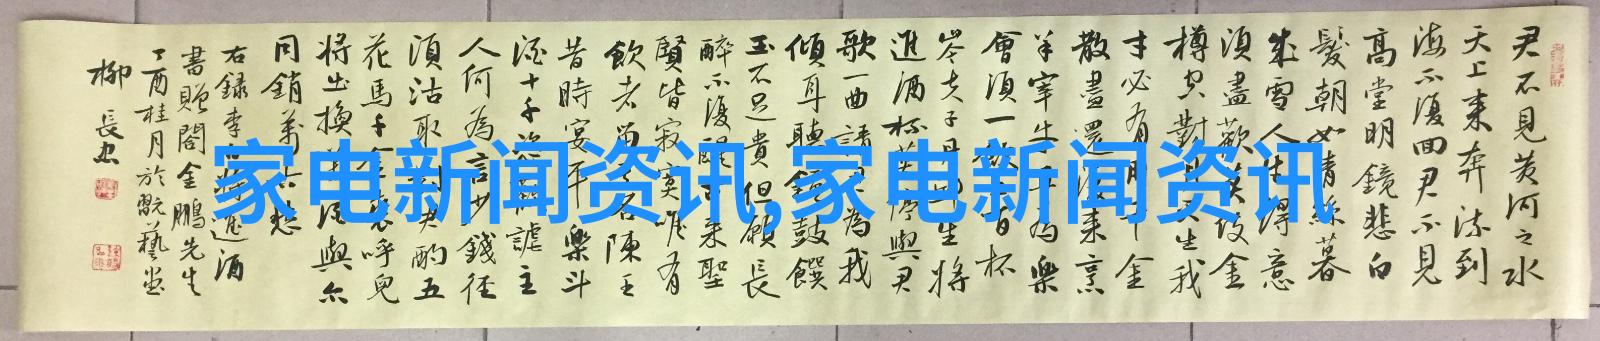 君不見黃河之水
天上来奔流到
海不復回君不見
高堂明鏡悲白
髮朝如青絲暮
成雪人生得意
須盡歡莫使金
樽空對月天生我
才必有用千金
散盡還復来烹
羊宰牛且為樂
會須一飲三百杯
岑夫子丹丘生將
進酒杯莫停與君
歌一曲請君為我
傾耳聽鐘鼓饌
玉不足貴但願長
醉不復醒古来聖
賢皆寂寞唯有
飲者留其名陳王
昔時宴平樂斗
酒十千恣歡謔主
人何為言少錢径
須沽取對君酌五
花馬千金裘呼兒
将出換美酒與尔
同銷萬古愁
右録李白将進酒
書贈閻金鵬先生
丁酉桂月於翫藝堂
柳長忠
家电新闻资讯,家电新闻资讯